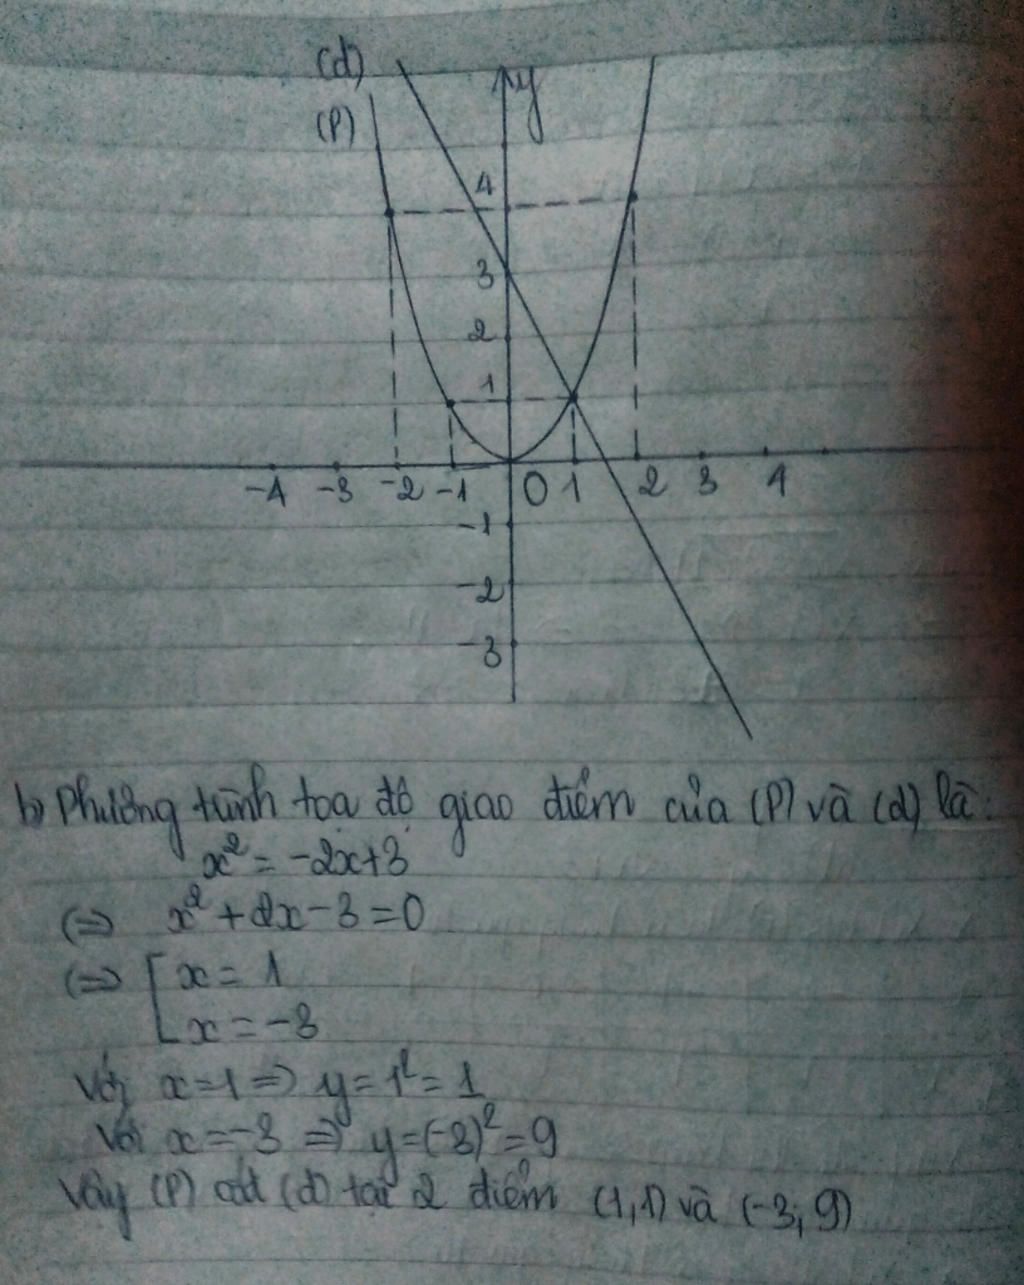 (d)
y
(P)
4
3
2
1
-4 -3 -2 -1 0 1 2 3 4
-1
-2
-3
b) Phương trình tọa độ giao điểm của (P) và (d) là:
x² = -2x+3
(=) x² + 2x - 3 = 0
(=) [ x = 1
x = -3
Với x=1 => y = 1² = 1
Với x = -3 => y = (-3)² = 9
Vậy (P) cắt (d) tại 2 điểm (1,1) và (-3; 9)